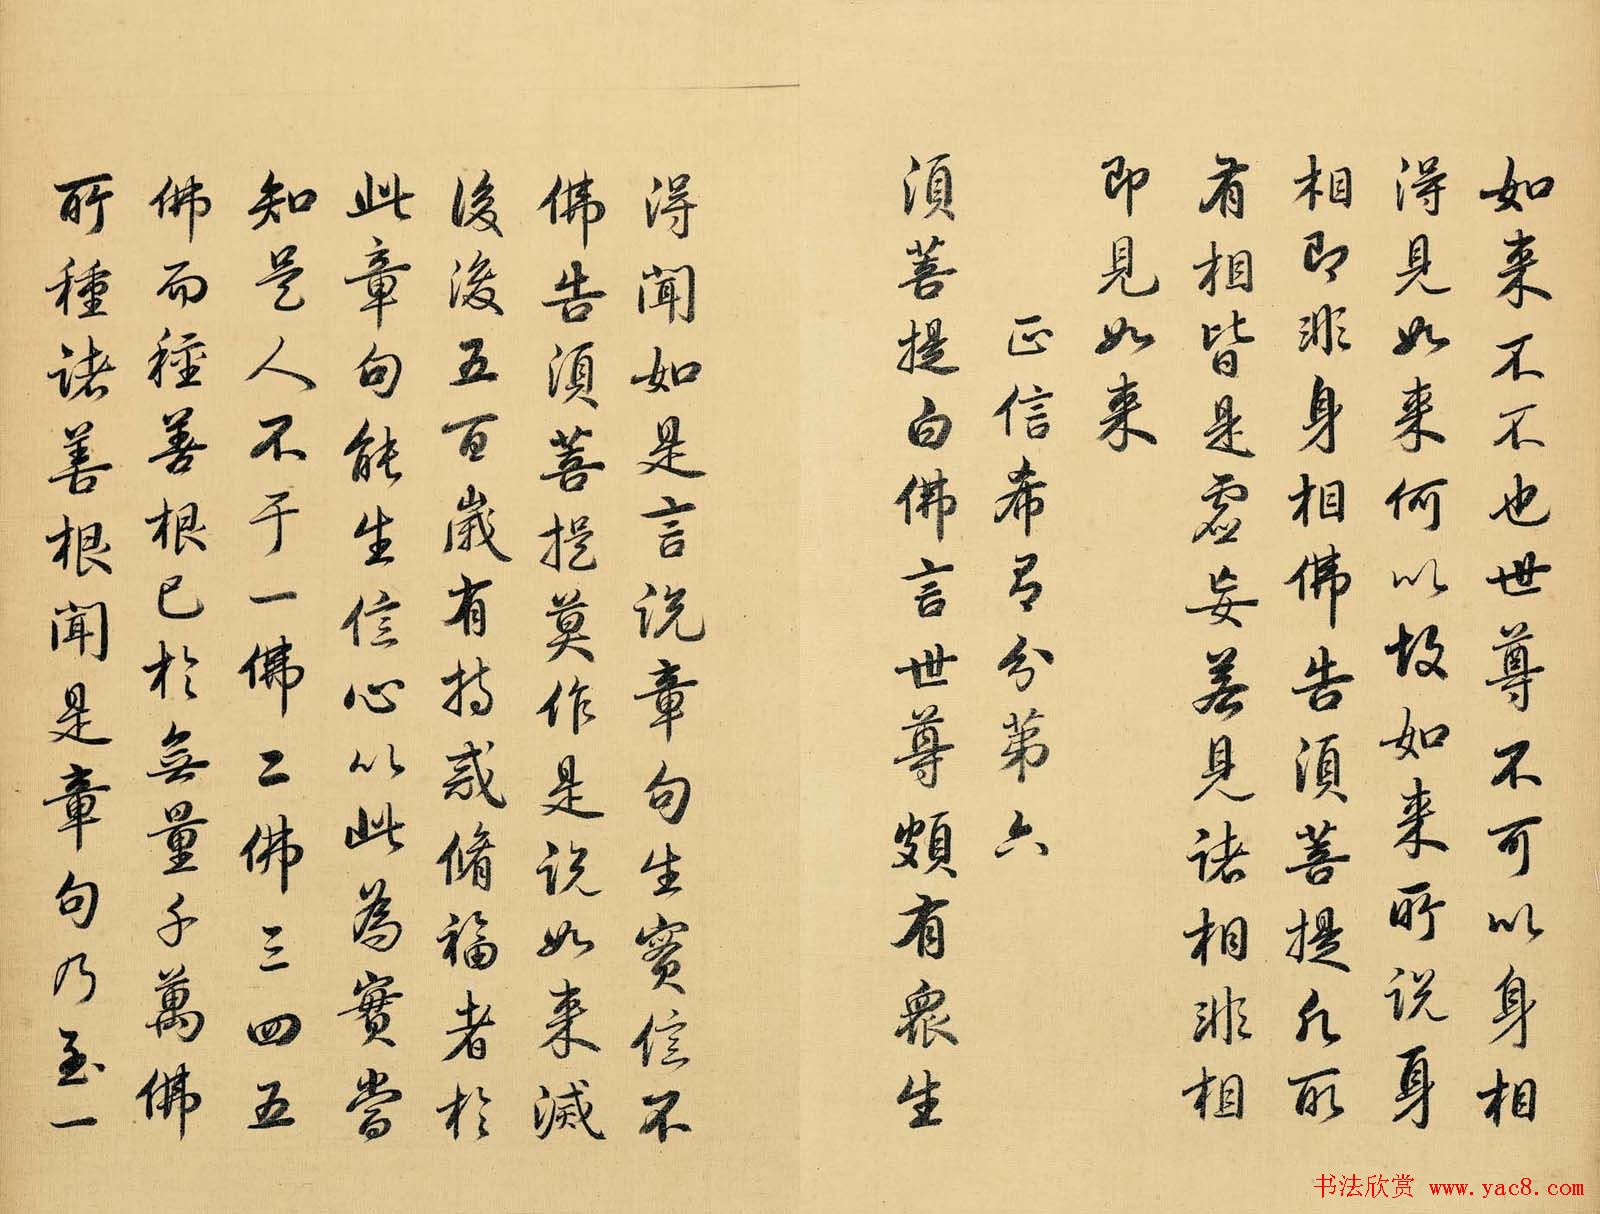 如来不不也世尊不可以身相
得見如来何以故如来所説身
相即非身相佛告須菩提凡所
有相皆是虛妄若見諸相非相
即見如来
正信希有分第六
須菩提白佛言世尊頗有眾生
得聞如是言説章句生實信不
佛告須菩提莫作是説如来滅
後後五百歲有持戒脩福者於
此章句能生信心以此為實當
知是人不于一佛二佛三四五
佛而種善根已於無量千萬佛
所種諸善根聞是章句乃至一
书法欣赏 www.yac8.com